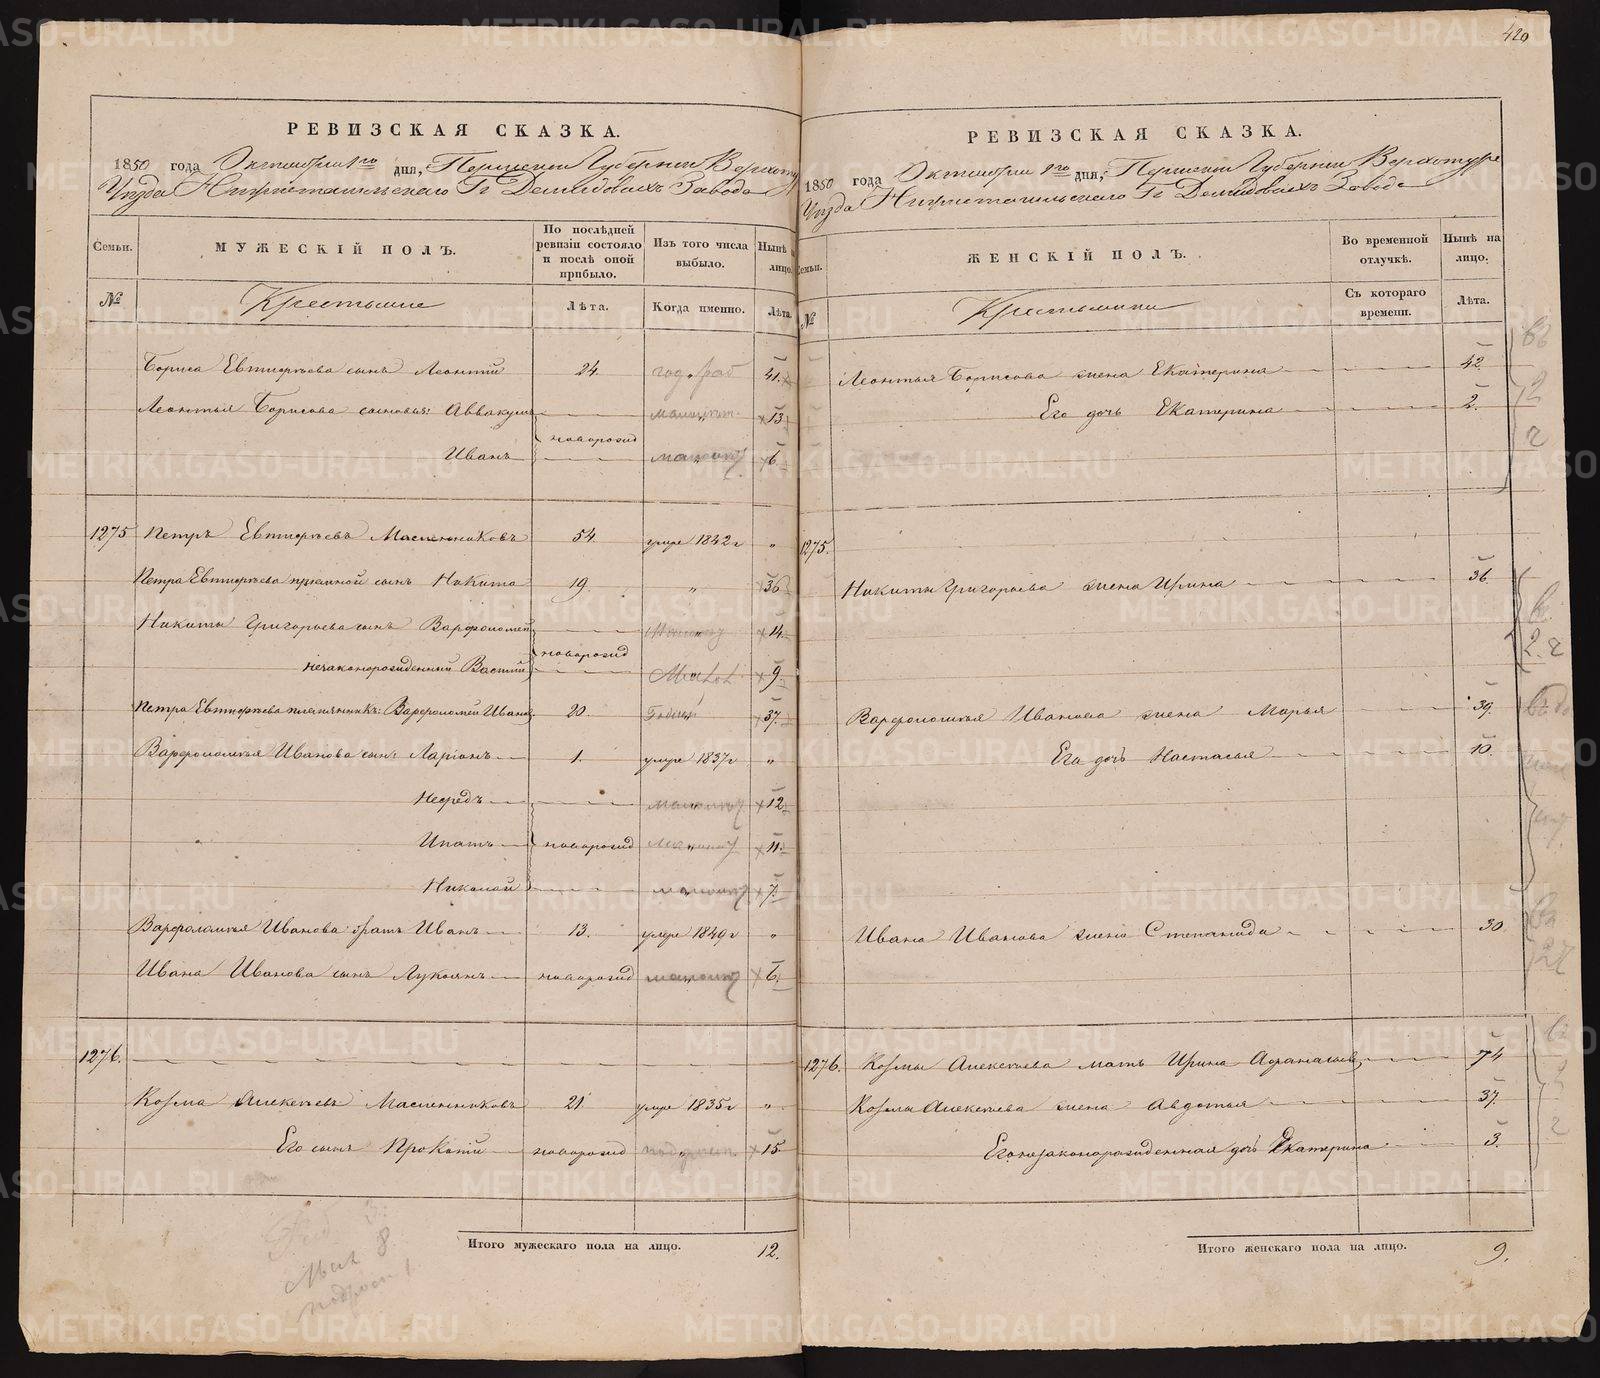 420
РЕВИЗСКАЯ СКАЗКА.
1850 года Октября 9го дня, Пермской Губернии Верхотур
Уезда Нижнетагильскаго Гг Демидовыхъ Завода
Семьи.
МУЖЕСКІЙ ПОЛЪ.
По послѣдней ревизіи состояло и послѣ оной прибыло.
Изъ того числа выбыло.
Нынѣ на лицо.
№
Крестьяне
Лѣта.
Когда именно.
Лѣта.
Бориса Евтифѣева сынъ Леонтій 24. 41.
Леонтья Борисова сыновья: Аввакумъ 13.
новорожд
Иванъ 6.
1275 Петръ Евтифѣевъ Масленниковъ 54. умре 1842 г "
Петра Евтифѣева приемной сынъ Никита 19. " 36
Никиты Григорьева сынъ Варфоломей 14.
новорожд
незаконорожденный Васил 9.
Петра Евтифѣева племянникъ: Варфоломей Иванов 20. 37.
Варфоломея Иванова сын: Ларіонъ 1. умре 1837 г "
Нефедъ 12
Ипатъ новорожд 11.
Николай 7.
Варфоломея Иванова братъ Иванъ 13. умре 1849 г "
Ивана Иванова сынъ Лукоянъ новорожд 6.
1276.
Козма Алексѣевъ Масленниковъ 21. умре 1835 г "
Его сынъ Прокопій новорожд 15.
Итого мужескаго пола на лицо. 12.
8.
РЕВИЗСКАЯ СКАЗКА.
1850 года Октября 9го дня, Пермской Губернии Верхотурс
Уезда Нижнетагильскаго Гг Демидовыхъ Завода
Семьи.
ЖЕНСКІЙ ПОЛЪ.
Во временной отлучкѣ.
Нынѣ на лицо.
№
Крестьянки
Съ котораго времени.
Лѣта.
Леонтья Борисова жена Екатерина 42.
Его дочь Екатерина 2.
1275.
Никиты Григорьева жена Ирина 36.
Варфоломея Иванова жена Марья 39.
Его дочь Настасья 10.
Ивана Иванова жена Степанида 30
1276. Козмы Алексѣева мать Ирина Афанасьев 74
Козмы Алексѣева жена Авдотья 37.
Его незаконорожденная дочь Екатерина 3.
Итого женскаго пола на лицо. 9.
METRIKI.GASO-URAL.RU